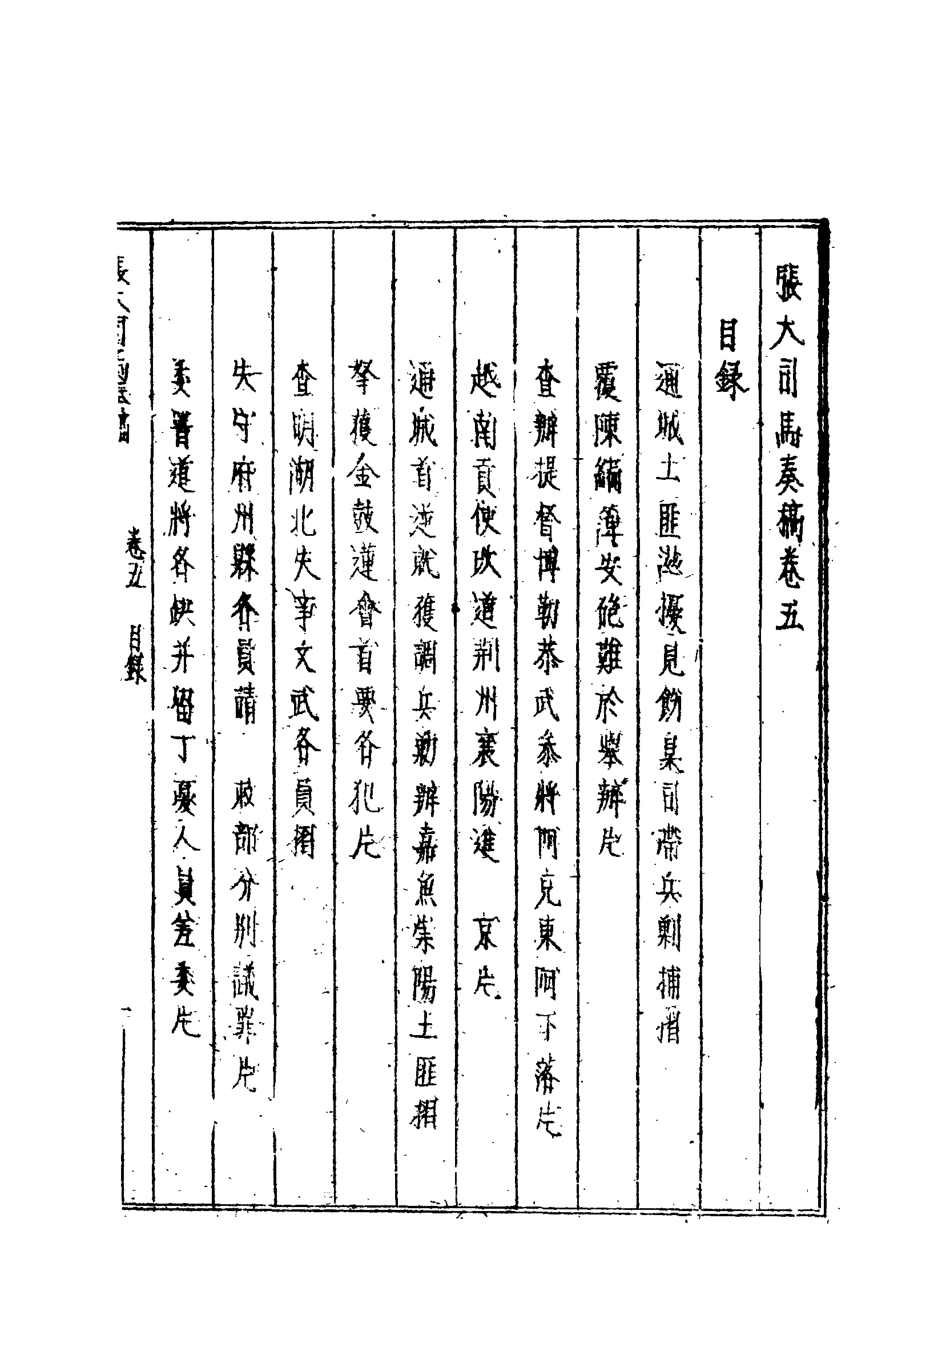 張大司馬奏稿卷五
目錄
通城土匪滋擾見飭臬司帶兵剿捕摺
覆陳編簰安砲難於舉辦片
查辦提督博勒恭武叅將阿克東阿下落片
越南貢使改道荆州襄陽進 京片
通城首逆就獲調兵勦辦嘉魚崇陽土匪摺
拏獲金鼓蓮會首要各犯片
查明湖北失事文武各員摺
失守府州縣各員請 敕部分別議罪片
委署道將各缺并留丁憂人員差委片
張大司馬奏稿 卷五 目錄 一